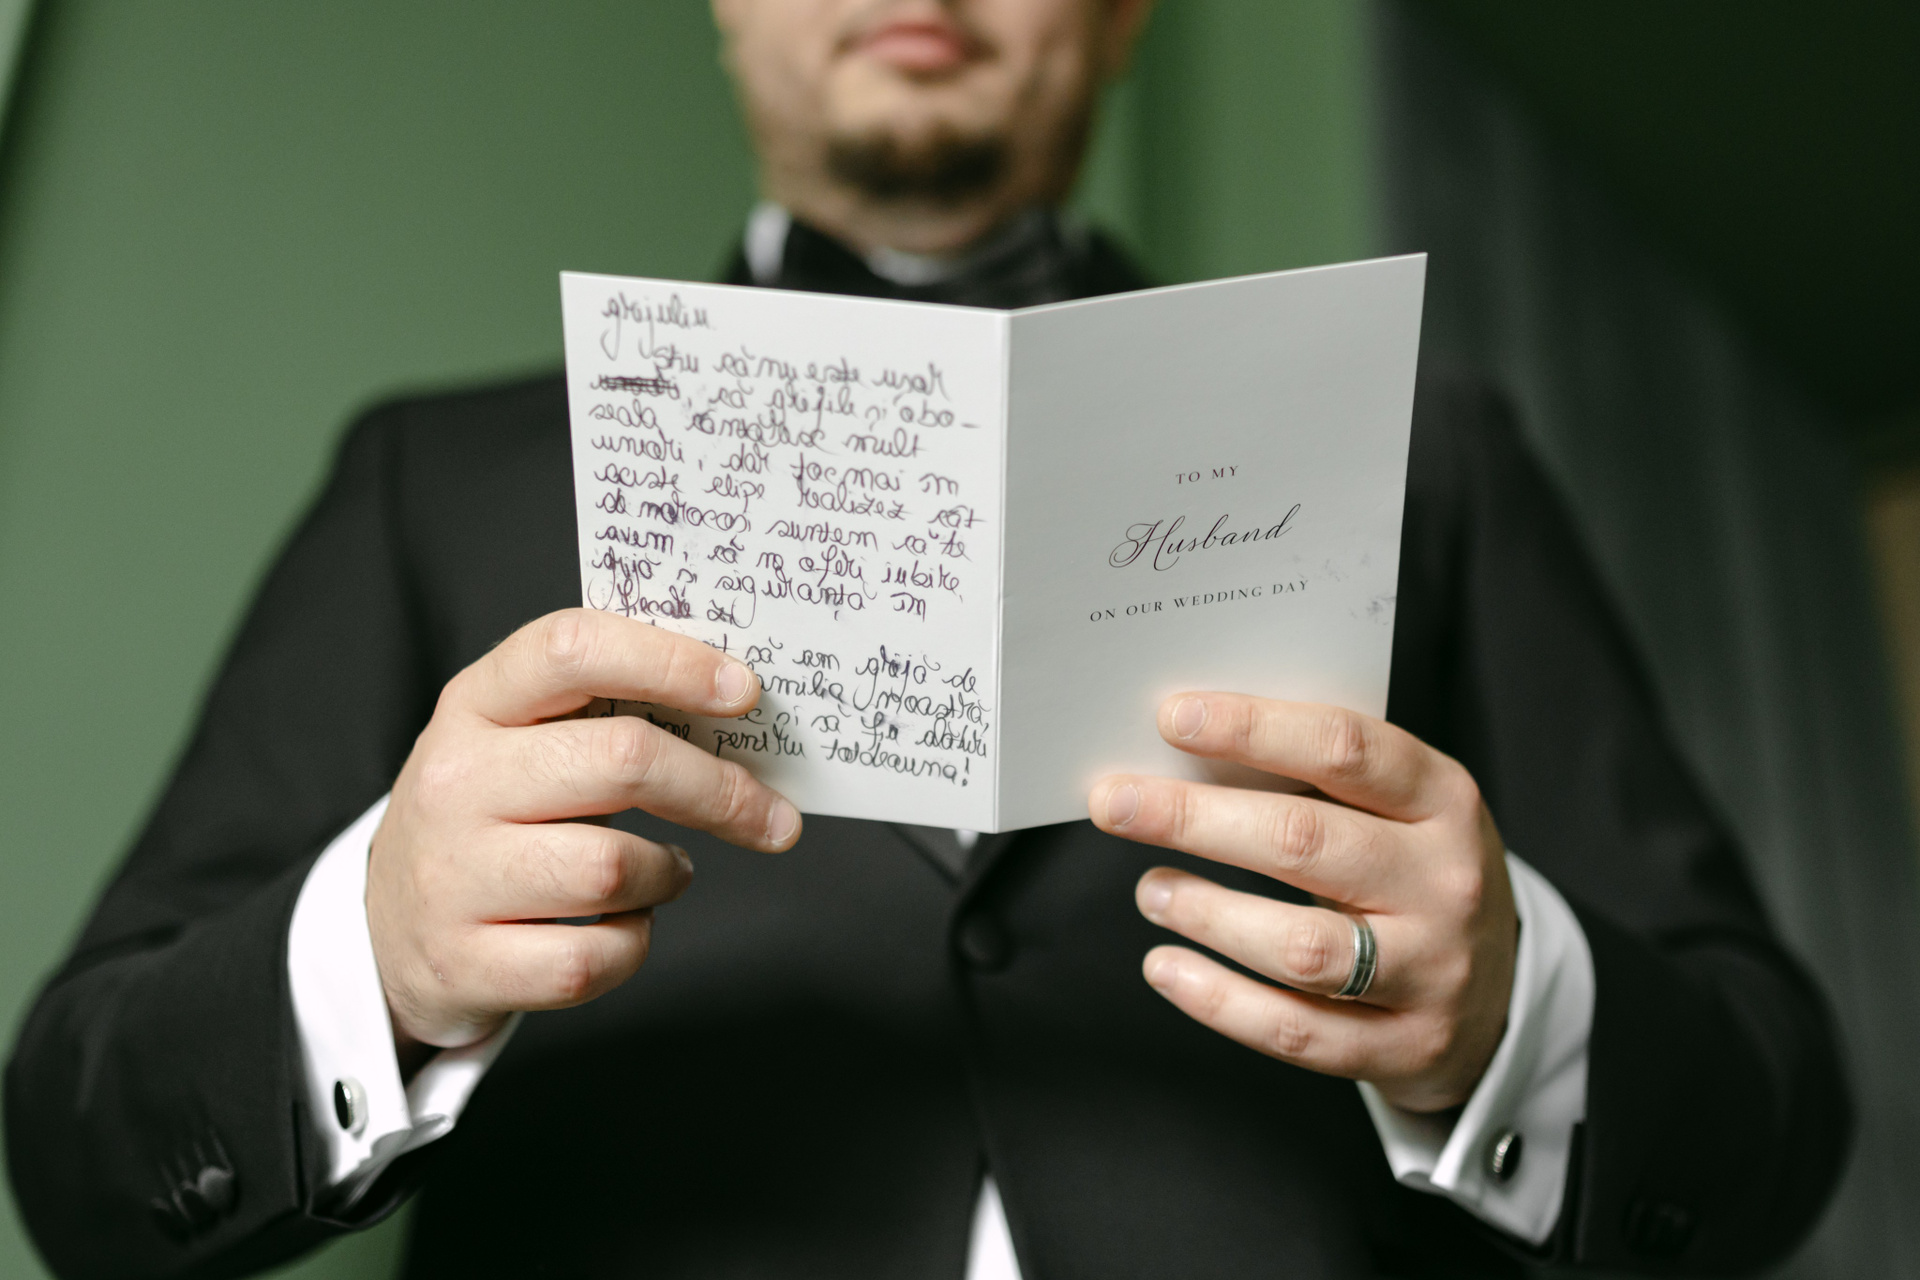 grijuliu.
Știu că nu este ușor
, că grijile și obo-
seala cântăresc mult
uneori, dar tocmai în
aceste clipe realizez cât
de norocoși suntem că te
avem, că ne oferi iubire,
grijă și siguranță în
fiecare zi
să am grijă de
familia noastră,
și să fiu alături
pentru totdeauna!
TO MY
Husband
ON OUR WEDDING DAY